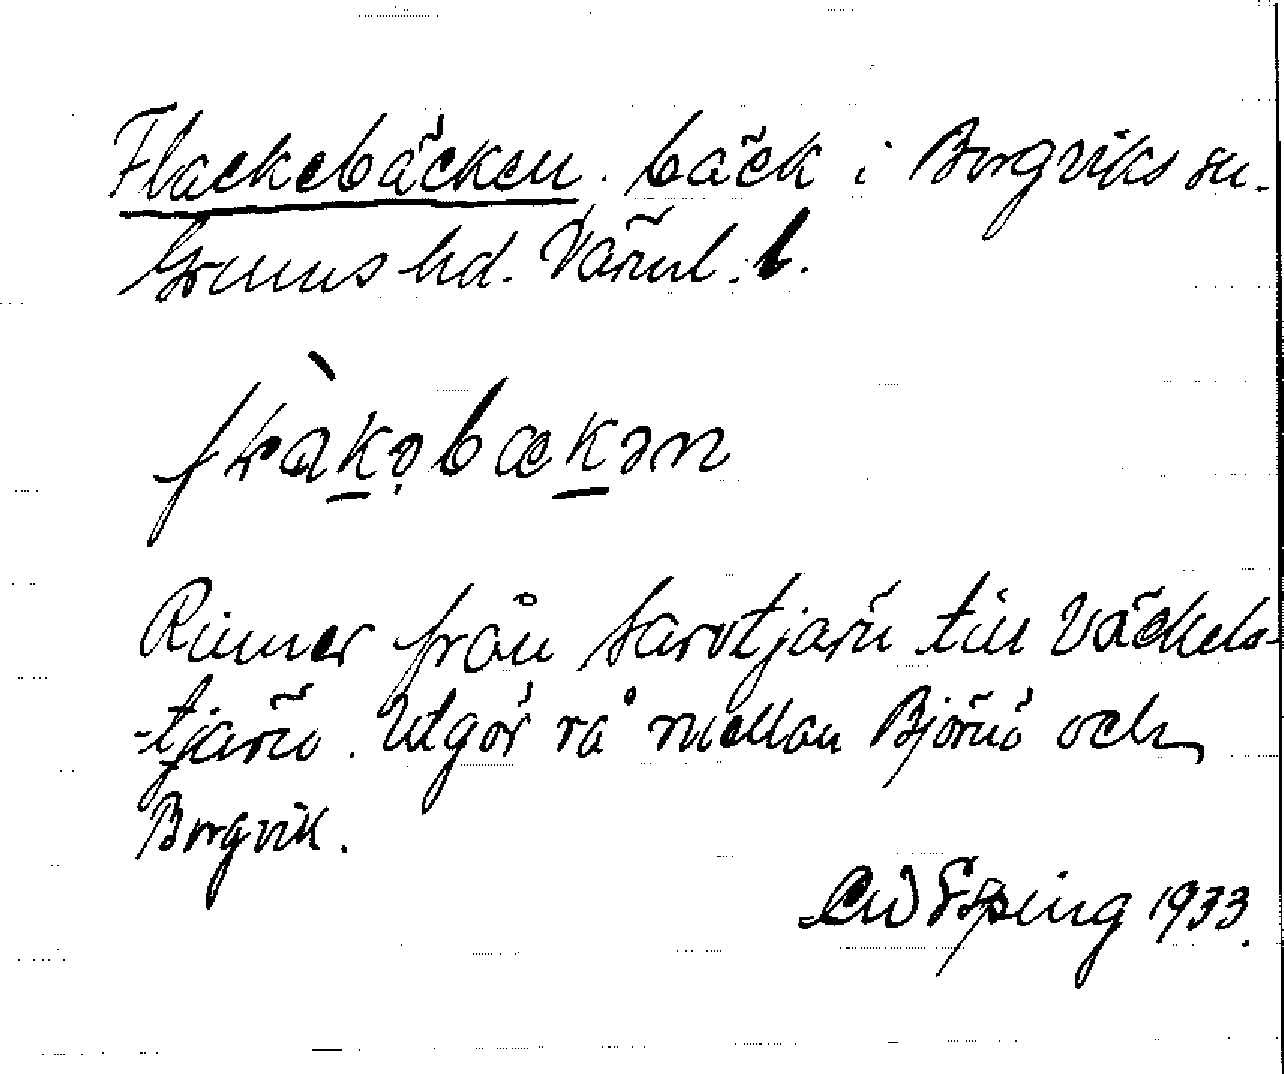 Flackebäcken. bäck i Borgviks sn.
Grums hd. Värml. l.
Rinner från tjärn till Väckels-
-tjärn. Utgör rå mellan Björnö och
Borgvik.
Esping 1933.